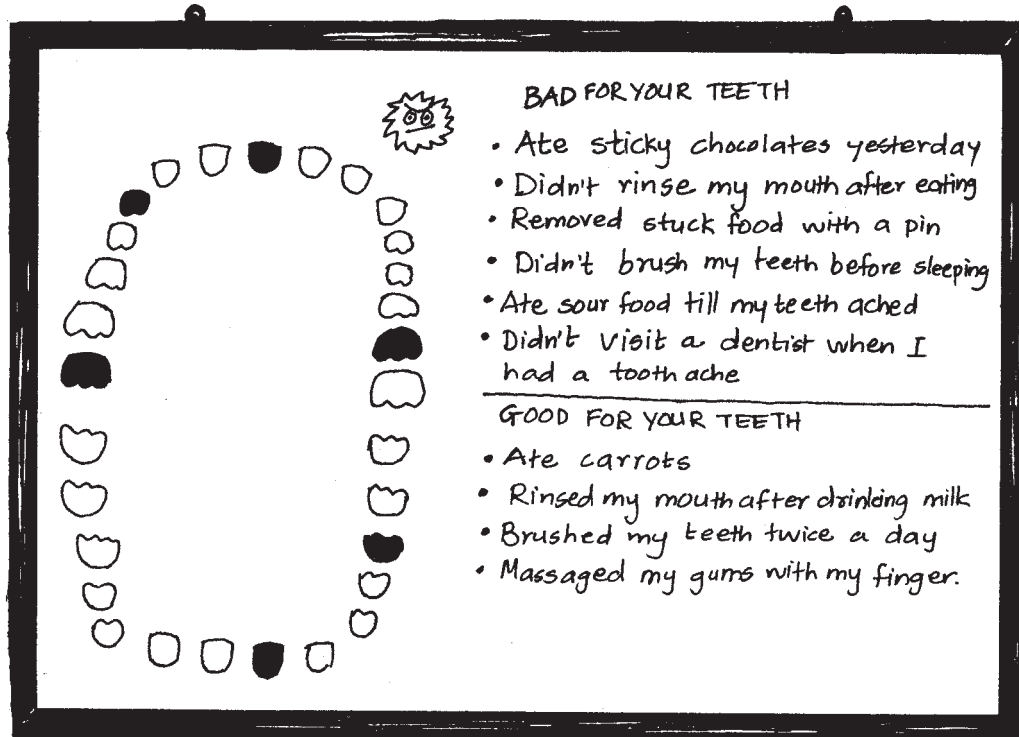 BAD FOR YOUR TEETH
• Ate sticky chocolates yesterday
• Didn't rinse my mouth after eating
• Removed stuck food with a pin
• Didn't brush my teeth before sleeping
• Ate sour food till my teeth ached
• Didn't visit a dentist when I
had a tooth ache
GOOD FOR YOUR TEETH
• Ate carrots
• Rinsed my mouth after drinking milk
• Brushed my teeth twice a day
• Massaged my gums with my finger.